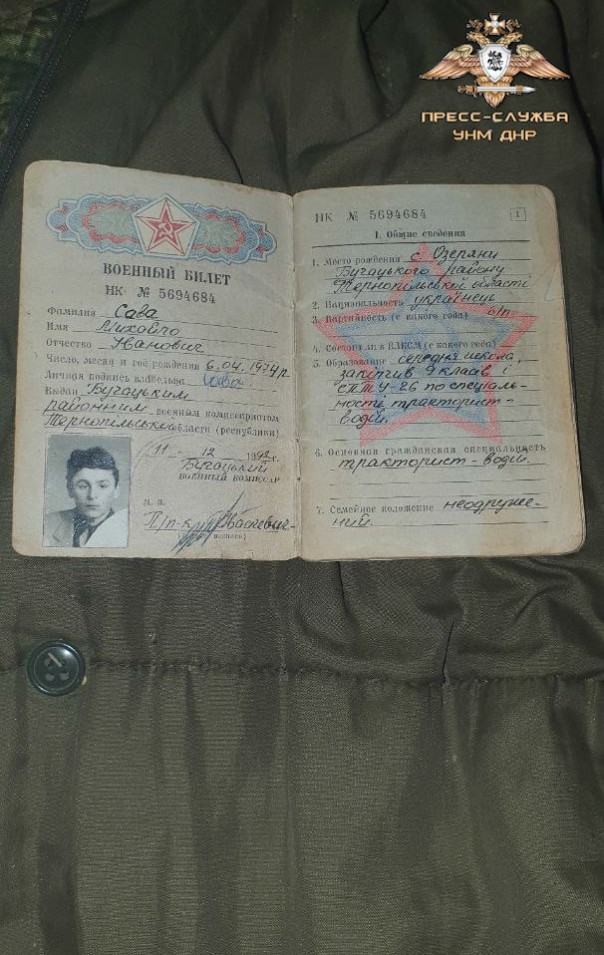 ПРЕСС-СЛУЖБА
УНМ ДНР
ВОЕННЫЙ БИЛЕТ
НК № 5694684
Фамилия Сава
Имя Михайло
Отчество Іванович
Число, месяц и год рождения 6.04.1974р.
Личная подпись владельца Сава
Выдан Бучацьким
районним военным комиссариатом
Тернопільської области (республики)
11 12 1992г.
Бучацький
ВОЕННЫЙ КОМИССАР
М. П.
П/п-к
НК № 5694684
1
I. Общие сведения
1. Место рождения с. Озеряни
Бучацького району
Тернопільської області
2. Национальность українець
3. Партийность (с какого года) б/п
4. Состоял ли в ВЛКСМ (с какого года)
5. Образование середня школа,
закінчив 9 класів і
СПТУ-26 по спеціаль-
ності тракторист-
водій.
6. Основная гражданская специальность
тракторист-водій.
7. Семейное положение неодруже-
ний.